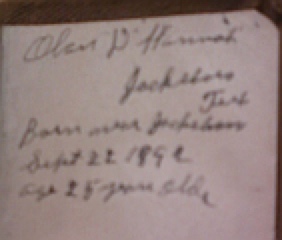 Jacksboro
Tex
Born near Jacksboro
Sept 22 1892
age 25 years old